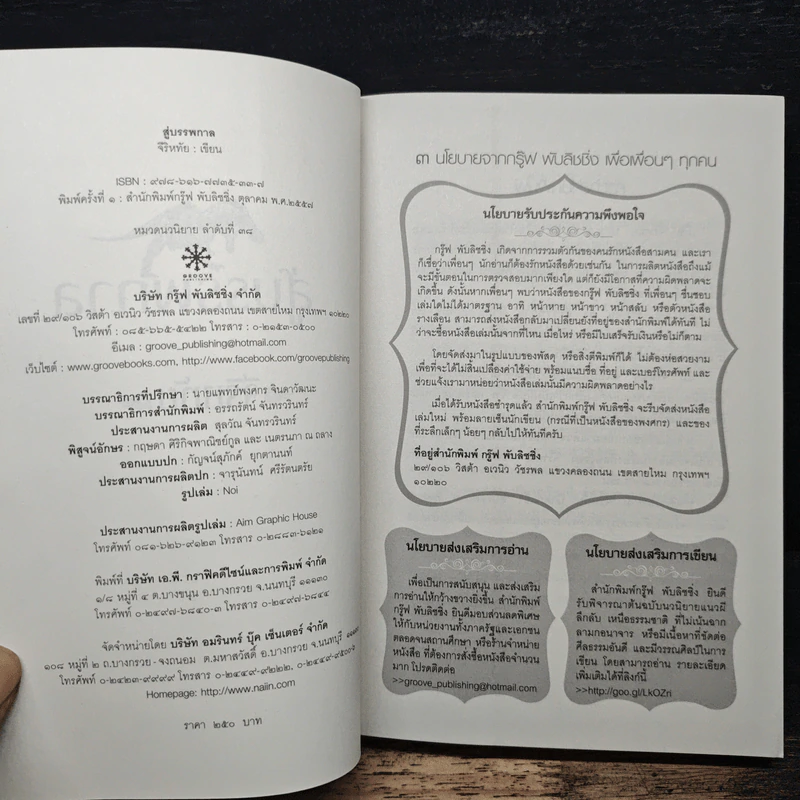 สู่บรรพกาล
จีริหทัย : เขียน
ISBN : ๙๗๘-๖๑๖-๗๗๓๕-๓๓-๗
พิมพ์ครั้งที่ ๑ : สำนักพิมพ์กรู๊ฟ พับลิชชิ่ง ตุลาคม พ.ศ.๒๕๕๗
หมวดนวนิยาย ลำดับที่ ๓๘
GROOVE
PUBLISHING
บริษัท กรู๊ฟ พับลิชชิ่ง จำกัด
เลขที่ ๒๙/๑๐๖ วิสต้า อเวนิว วัชรพล แขวงคลองถนน เขตสายไหม กรุงเทพฯ ๑๐๒๒๐
โทรศัพท์ : ๐๘๕-๖๖๕-๕๔๒๒ โทรสาร : ๐-๒๑๕๓-๐๕๐๐
อีเมล : groove_publishing@hotmail.com
เว็บไซต์ : www.groovebooks.com, http://www.facebook.com/groovepublishing
บรรณาธิการที่ปรึกษา : นายแพทย์พงศกร จินดาวัฒนะ
บรรณาธิการสำนักพิมพ์ : อรรถรัตน์ จันทรวรินทร์
ประสานงานการผลิต สุลวัณ จันทรวรินทร์
พิสูจน์อักษร : กฤษดา ศิริกิจพาณิชย์กูล และ เนตรนภา ณ ถลาง
ออกแบบปก : กัญจน์สุภักค์ ยุกตานนท์
ประสานงานการผลิตปก : จารุนันทน์ ศรีรัตนตรัย
รูปเล่ม : Noi
ประสานงานการผลิตรูปเล่ม : Aim Graphic House
โทรศัพท์ ๐๘๑-๖๒๖-๙๑๒๓ โทรสาร ๐-๒๘๘๓-๖๑๒๑
พิมพ์ที่ บริษัท เอ.พี. กราฟิคดีไซน์และการพิมพ์ จำกัด
๑/๘ หมู่ที่ ๔ ต.บางขนุน อ.บางกรวย จ.นนทบุรี ๑๑๑๓๐
โทรศัพท์ ๐-๒๔๙๗-๖๘๔๐-๓ โทรสาร ๐-๒๔๙๗-๖๘๔๔
จัดจำหน่ายโดย บริษัท อมรินทร์ บุ๊ค เซ็นเตอร์ จำกัด
๑๐๘ หมู่ที่ ๒ ถ.บางกรวย - จงถนอม ต.มหาสวัสดิ์ อ.บางกรวย จ.นนทบุรี ๑๑๑๓๐
โทรศัพท์ ๐-๒๔๒๓-๙๙๙๙ โทรสาร ๐-๒๔๔๙-๙๒๒๒, ๐-๒๔๔๙-๙๕๐๐-๖
Homepage: http://www.naiin.com
ราคา ๒๕๐ บาท
๓ นโยบายจากกรู๊ฟ พับลิชชิ่ง เพื่อเพื่อนๆ ทุกคน
นโยบายรับประกันความพึงพอใจ
กรู๊ฟ พับลิชชิ่ง เกิดจากการรวมตัวกันของคนรักหนังสือสามคน และเรา
ก็เชื่อว่าเพื่อนๆ นักอ่านก็ต้องรักหนังสือด้วยเช่นกัน ในการผลิตหนังสือถึงแม้
จะมีขั้นตอนในการตรวจสอบมากเพียงใด แต่ก็ยังมีโอกาสที่ความผิดพลาดจะ
เกิดขึ้น ดังนั้นหากเพื่อนๆ พบว่าหนังสือของกรู๊ฟ พับลิชชิ่ง ที่เพื่อนๆ ชื่นชอบ
เล่มใดไม่ได้มาตรฐาน อาทิ หน้าหาย หน้าขาว หน้าสลับ หรือตัวหนังสือ
รางเลือน สามารถส่งหนังสือกลับมาเปลี่ยนยังที่อยู่ของสำนักพิมพ์ได้ทันที ไม่
ว่าจะซื้อหนังสือเล่มนั้นจากที่ไหน เมื่อไหร่ หรือมีใบเสร็จรับเงินหรือไม่ก็ตาม
โดยจัดส่งมาในรูปแบบของพัสดุ หรือสิ่งตีพิมพ์ก็ได้ ไม่ต้องห่อสวยงาม
เพื่อที่จะได้ไม่สิ้นเปลืองค่าใช้จ่าย พร้อมแนบชื่อ ที่อยู่ และเบอร์โทรศัพท์ และ
ช่วยแจ้งเรามาหน่อยว่าหนังสือเล่มนั้นมีความผิดพลาดอย่างไร
เมื่อได้รับหนังสือชำรุดแล้ว สำนักพิมพ์กรู๊ฟ พับลิชชิ่ง จะรีบจัดส่งหนังสือ
เล่มใหม่ พร้อมลายเซ็นนักเขียน (กรณีที่เป็นหนังสือของพงศกร) และของ
ที่ระลึกเล็กๆ น้อยๆ กลับไปให้ทันทีครับ
ที่อยู่สำนักพิมพ์ กรู๊ฟ พับลิชชิ่ง
๒๙/๑๐๖ วิสต้า อเวนิว วัชรพล แขวงคลองถนน เขตสายไหม กรุงเทพฯ
๑๐๒๒๐
นโยบายส่งเสริมการอ่าน
เพื่อเป็นการสนับสนุน และส่งเสริม
การอ่านให้กว้างขวางยิ่งขึ้น สำนักพิมพ์
กรู๊ฟ พับลิชชิ่ง ยินดีมอบส่วนลดพิเศษ
ให้กับหน่วยงานทั้งภาครัฐและเอกชน
ตลอดจนสถานศึกษา หรือร้านจำหน่าย
หนังสือ ที่ต้องการสั่งซื้อหนังสือจำนวน
มาก โปรดติดต่อ
>>groove_publishing@hotmail.com
นโยบายส่งเสริมการเขียน
สำนักพิมพ์กรู๊ฟ พับลิชชิ่ง ยินดี
รับพิจารณาต้นฉบับนวนิยายแนวผี
ลึกลับ เหนือธรรมชาติ ที่ไม่เน้นฉาก
ลามกอนาจาร หรือมีเนื้อหาที่ขัดต่อ
ศีลธรรมอันดี และมีวรรณศิลป์ในการ
เขียน โดยสามารถอ่าน รายละเอียด
เพิ่มเติมได้ที่ลิงก์นี้
>>http://goo.gl/LkOZri